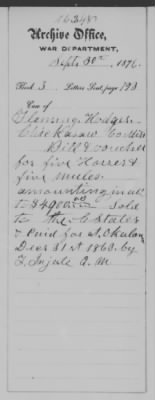 16348
Archive Office,
WAR DEPARTMENT,
Sept. 30th, 1876.
Book 3 Letters Sent, page 123
Case of
Flemming Hodges
Chickasaw Co Miss
Bill & voucher
for five Horses &
five mules
amounting in all
to $4900.00 sold
to the C States
& paid for at Okalona
Decr 31st 1863. by
A. M.